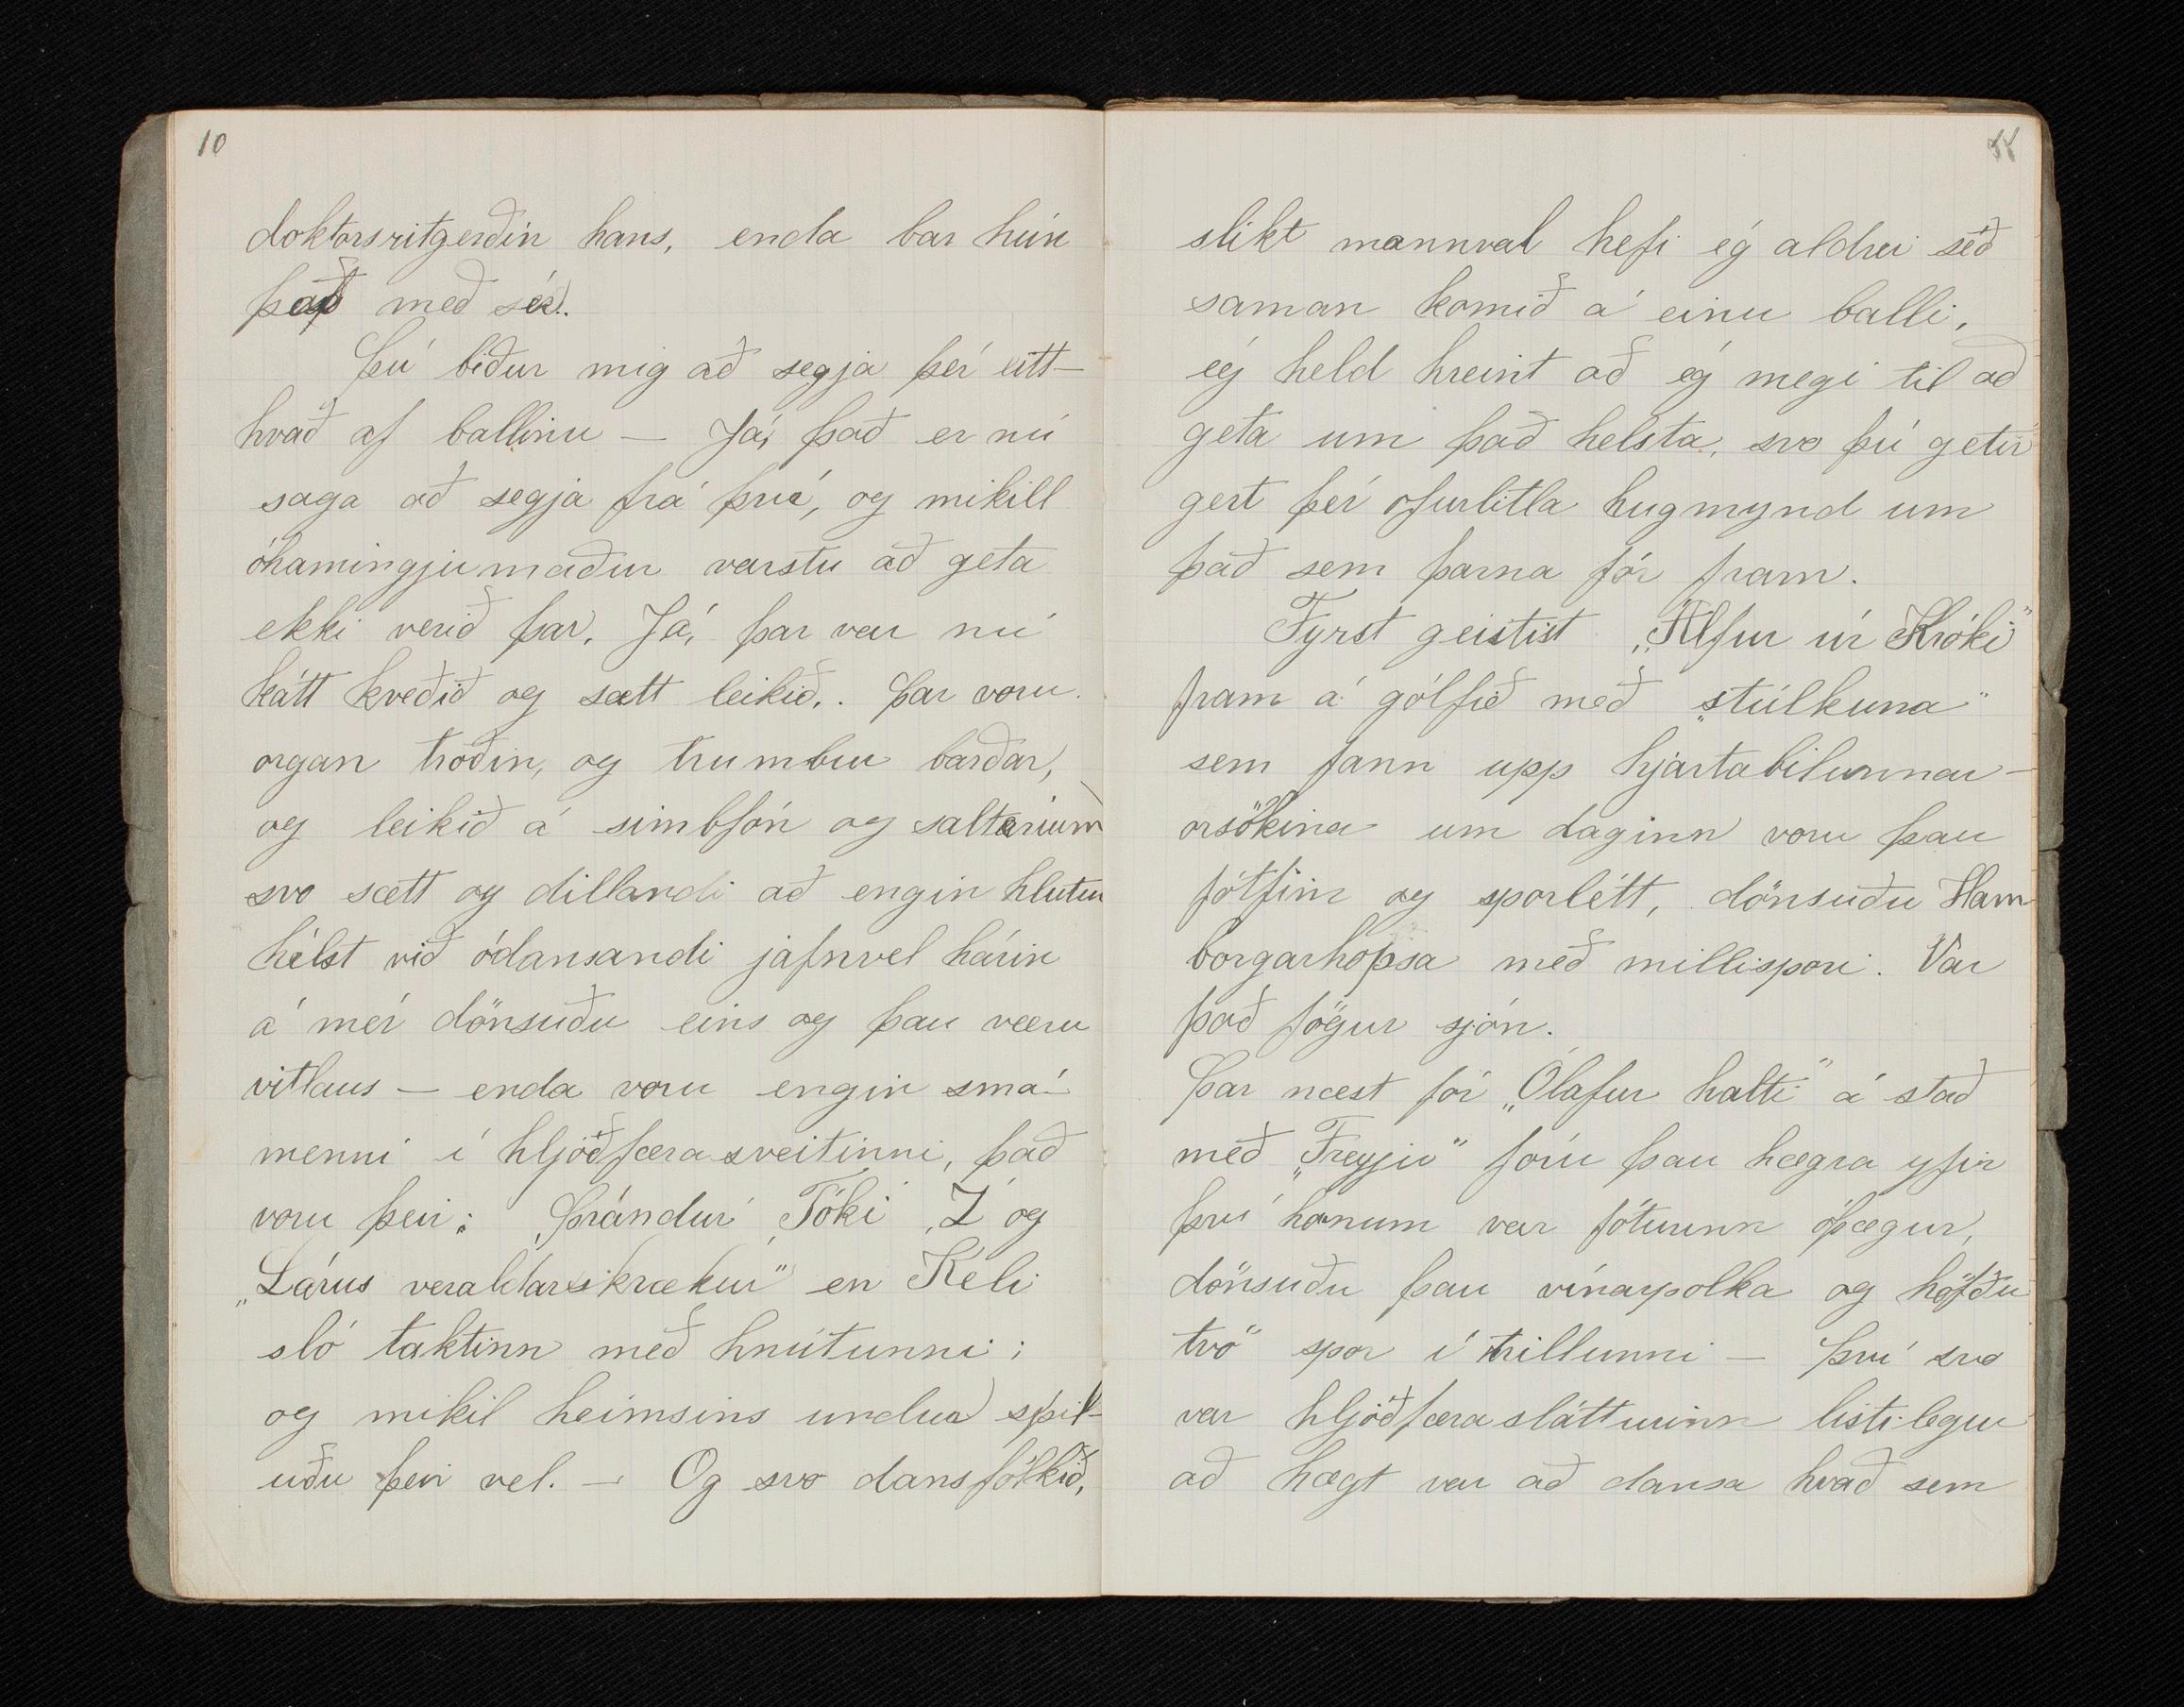 10
doktorsritgerðin hans, enda bar hún
það með sér.
Þú biður mig að segja þér eitt-
hvað af ballinu – Já, það er nú
saga að segja frá því, og mikill
óhamingjumaður varstu að geta
ekki verið þar. Já, þar var nú
kátt kveðið og sætt leikið. Þar voru
organ troðin, og trumbur barðar,
og leikið á simbfón og saltarium
svo sætt og dillandi að engin hlutur
hélst við ódansandi jafnvel hárin
á mér dönsuðu eins og þau væru
vitlaus – enda voru engin smá-
menni í hljóðfærasveitinni, það
voru þeir: Þrándur, Tóki, Z og
„Lárus veraldarskrækur" en Keli
sló taktinn með hnútunni;
og mikil heimsins undur spil-
uðu þeir vel. – Og svo dansfólkið,
slíkt mannval hefi ég aldrei séð
saman komið á einu balli,
ég held hreint að ég megi til að
geta um það helsta, svo þú getir
gert þér ofurlitla hugmynd um
það sem þarna fór fram.
Fyrst geistist „Álfur úr Króki"
fram á gólfið með „stúlkuna"
sem fann upp hjartabilunnar-
orsökina um daginn voru þau
fótfim og sporlétt, dönsuðu Ham
borgarhopsa með millispori. Var
það fögur sjón.
Þar næst fór „Ólafur halti" á stað
með „Freyju" fóru þau hægra yfir
því honum var fóturinn óþægur,
dönsuðu þau vínarpolka og höfðu
tvö spor í trillunni – því svo
var hljóðfæraslátturinn listilegur
að hægt var að dansa hvað sem